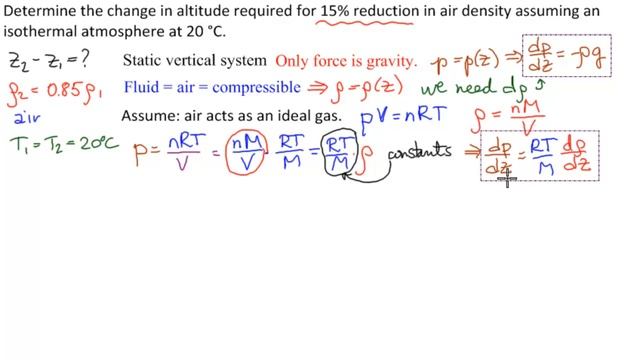 Determine the change in altitude required for 15% reduction in air density assuming an
isothermal atmosphere at 20 °C.
z₂ - z₁ = ? Static vertical system Only force is gravity. p = p(z) ⇒ dp/dz = -ρg
ρ₂ = 0.85ρ₁ Fluid = air = compressible ⇒ ρ = ρ(z) we need dρ ↑
air Assume: air acts as an ideal gas. pV = nRT ρ = nM/V
T₁ = T₂ = 20°C p = nRT/V = nM/V · RT/M = RT/M ρ constants ⇒ dp/dz = RT/M dρ/dz